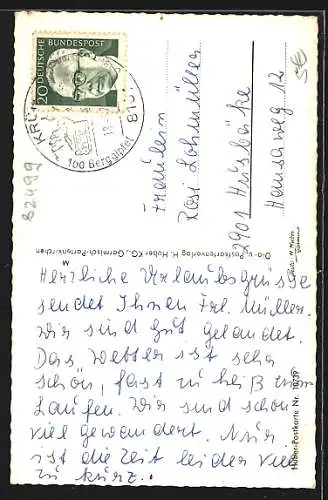 DEUTSCHE BUNDESPOST
20
KRÜN
8101
100 Berggipfel
82499
5€
Fräulein
Rosi Lohmüller
2901 Husbäke
Hansaweg 12
Dia- u. Postkartenverlag H. Huber KG., Garmisch-Partenkirchen
M
Herzliche Urlaubsgrüsse
sendet Ihnen Frl. Müller.
Wir sind gut gelandet.
Das Wetter ist sehr
schön, fast zu heiß zum
Laufen. Wir sind schon
viel gewandert. Nur
ist die Zeit leider viel
zu kurz.
Huber-Postkarte Nr.